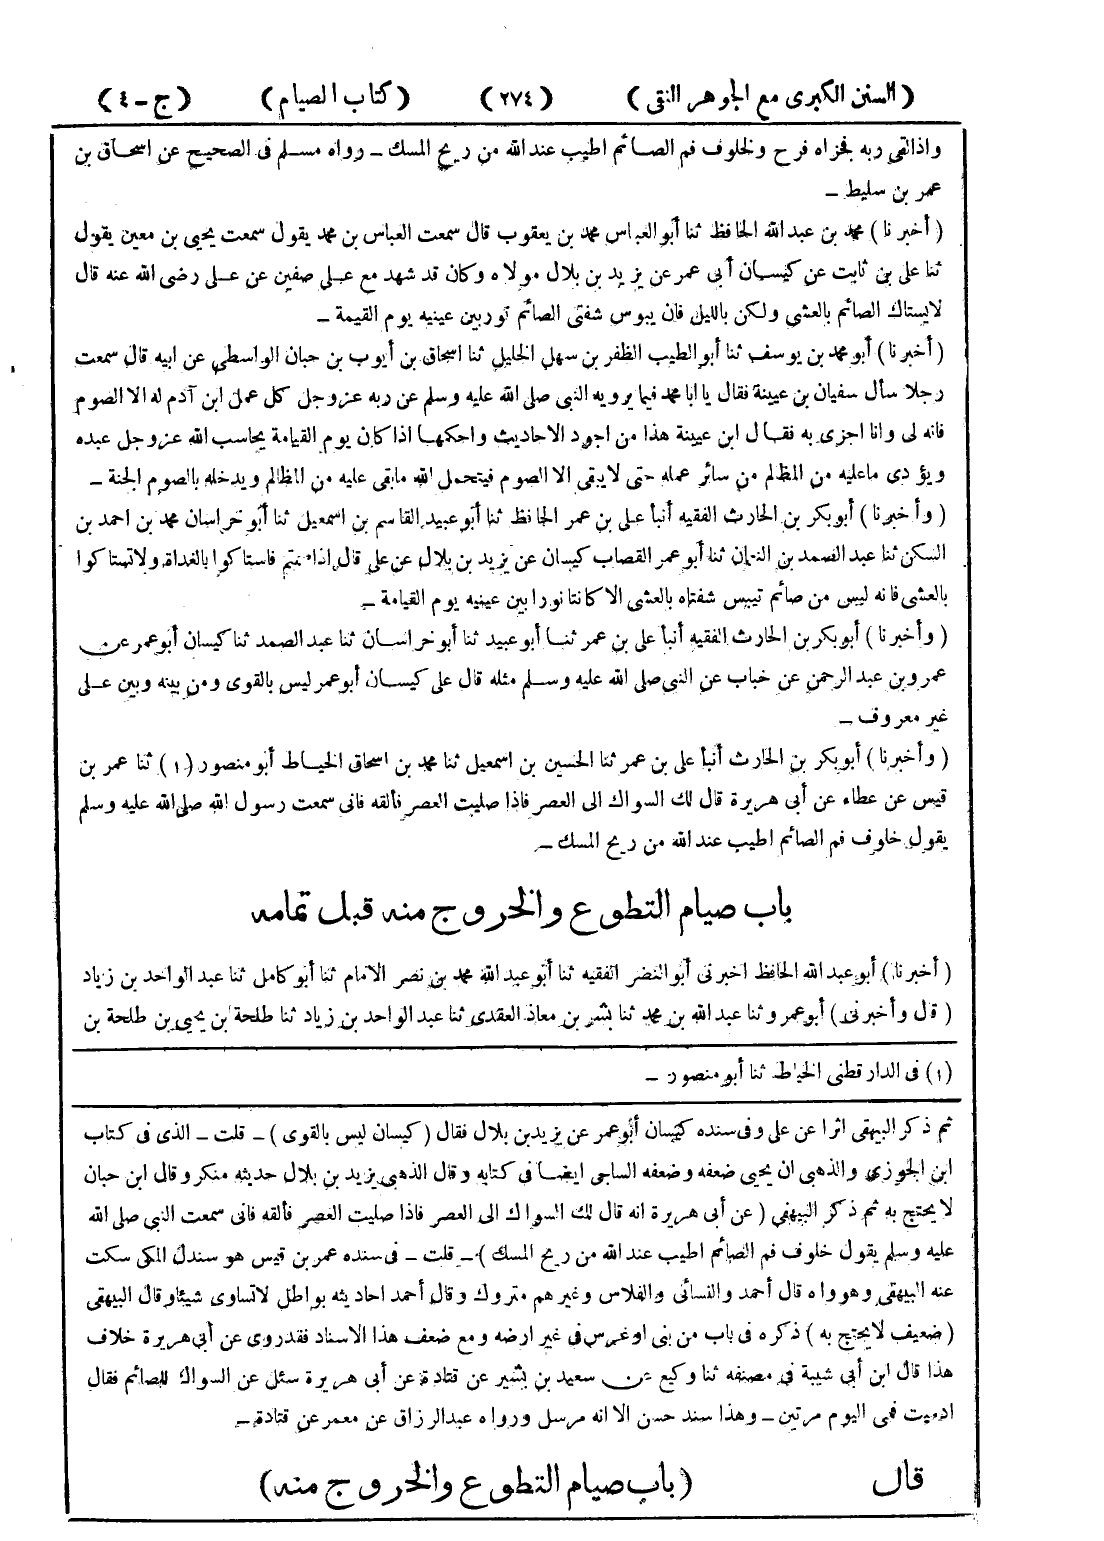 ( السنن الكبرى مع الجوهر النقى ) ( ٢٧٤ ) ( كتاب الصيام ) ( ج - ٤ )
واذالقى ربه فجزاه فرح ولخلوف فم الصائم اطيب عند الله من ريح المسك ــ رواه مسلم فى الصحيح عن اسحاق بن
عمر بن سليط ــ
( أخبرنا ) محمد بن عبد الله الحافظ ثنا أبو العباس محمد بن يعقوب قال سمعت العباس بن محمد يقول سمعت يحيى بن معين يقول
ثنا على بن ثابت عن كيسان أبى عمر عن يزيد بن بلال مولاه وكان قد شهد مع على صفين عن على رضى الله عنه قال
لايستاك الصائم بالعشى ولكن بالليل فان يبوس شفتى الصائم نور بين عينيه يوم القيمة ــ
( أخبرنا ) أبو محمد بن يوسف ثنا أبو الطيب المظفر بن سهل الخليل ثنا اسحاق بن أيوب بن حبان الواسطى عن ابيه قال سمعت
رجلا سأل سفيان بن عيينة فقال يا ابا محمد فيما يرويه النبى صلى الله عليه وسلم عن ربه عزوجل كل عمل ابن آدم له الا الصوم
فانه لى وانا اجزى به فقال ابن عيينة هذا من اجود الاحاديث واحكمها اذا كان يوم القيامة يحاسب الله عزوجل عبده
ويؤدى ماعليه من المظالم من سائر عمله حتى لا يبقى الا الصوم فيتحمل الله مابقى عليه من المظالم ويدخله بالصوم الجنة ــ
( وأخبرنا ) أبوبكر بن الحارث الفقيه أنبأ على بن عمر الحافظ ثنا أبو عبيد القاسم بن اسمعيل ثنا أبو خراسان محمد بن احمد بن
السكن ثنا عبد الصمد بن النعمان ثنا أبو عمر القصاب كيسان عن يزيد بن بلال عن على قال اذا صمتم فاستاكوا بالغداة ولاتستاكوا
بالعشى فانه ليس من صائم تيبس شفتاه بالعشى الا كانتا نورا بين عينيه يوم القيامة ــ
( وأخبرنا ) أبوبكر بن الحارث الفقيه أنبأ على بن عمر ثنا أبو عبيد ثنا أبو خراسان ثنا عبد الصمد ثنا كيسان أبو عمر عن
عمرو بن عبد الرحمن عن خباب عن النبى صلى الله عليه وسلم مثله قال على كيسان أبو عمر ليس بالقوى ومن بينه وبين على
غير معروف ــ
( وأخبرنا ) أبوبكر بن الحارث أنبأ على بن عمر ثنا الحسين بن اسمعيل ثنا محمد بن اسحاق الخياط أبو منصور (١) ثنا عمر بن
قيس عن عطاء عن أبى هريرة قال لك السواك الى العصر فاذا صليت العصر فألقه فانى سمعت رسول الله صلى الله عليه وسلم
يقول خلوف فم الصائم اطيب عند الله من ريح المسك ــ
باب صيام التطوع والخروج منه قبل تمامه
( أخبرنا ) أبو عبد الله الحافظ اخبرنى أبو النضر الفقيه ثنا أبو عبد الله محمد بن نصر الامام ثنا أبو كامل ثنا عبد الواحد بن زياد
( قال وأخبرنى ) أبو عمرو ثنا عبد الله بن محمد ثنا بشر بن معاذ العقدى ثنا عبد الواحد بن زياد ثنا طلحة بن يحيى بن طلحة بن
(١) فى الدار قطنى الخياط ثنا أبو منصور ــ
ثم ذكر البيهقى اثرا عن على وفى سنده كيسان أبو عمر عن يزيد بن بلال فقال ( كيسان ليس بالقوى ) ــ قلت ــ الذى فى كتاب
ابن الجوزى والذهبى ان يحيى ضعفه وضعفه الساجى ايضا فى كتابه وقال الذهبى يزيد بن بلال حديثه منكر وقال ابن حبان
لا يحتج به ثم ذكر البيهقى ( عن أبى هريرة انه قال لك السواك الى العصر فاذا صليت العصر فألقه فانى سمعت النبى صلى الله
عليه وسلم يقول خلوف فم الصائم اطيب عند الله من ريح المسك ) ــ قلت ــ فى سنده عمر بن قيس هو سندل المكى سكت
عنه البيهقى وهو واه قال أحمد والنسائى والفلاس وغيرهم متروك وقال أحمد احاديثه بواطل لاتساوى شيئا وقال البيهقى
( ضعيف لا يحتج به ) ذكره فى باب من بنى او غرس فى غير ارضه ومع ضعف هذا الاسناد فقد روى عن أبى هريرة خلاف
هذا قال ابن أبى شيبة فى مصنفه ثنا وكيع عن سعيد بن بشير عن قتادة عن أبى هريرة سئل عن السواك للصائم فقال
ادميت فمى اليوم مرتين ــ وهذا سند حسن الا انه مرسل ورواه عبد الرزاق عن معمر عن قتادة ــ
قال ( باب صيام التطوع والخروج منه )